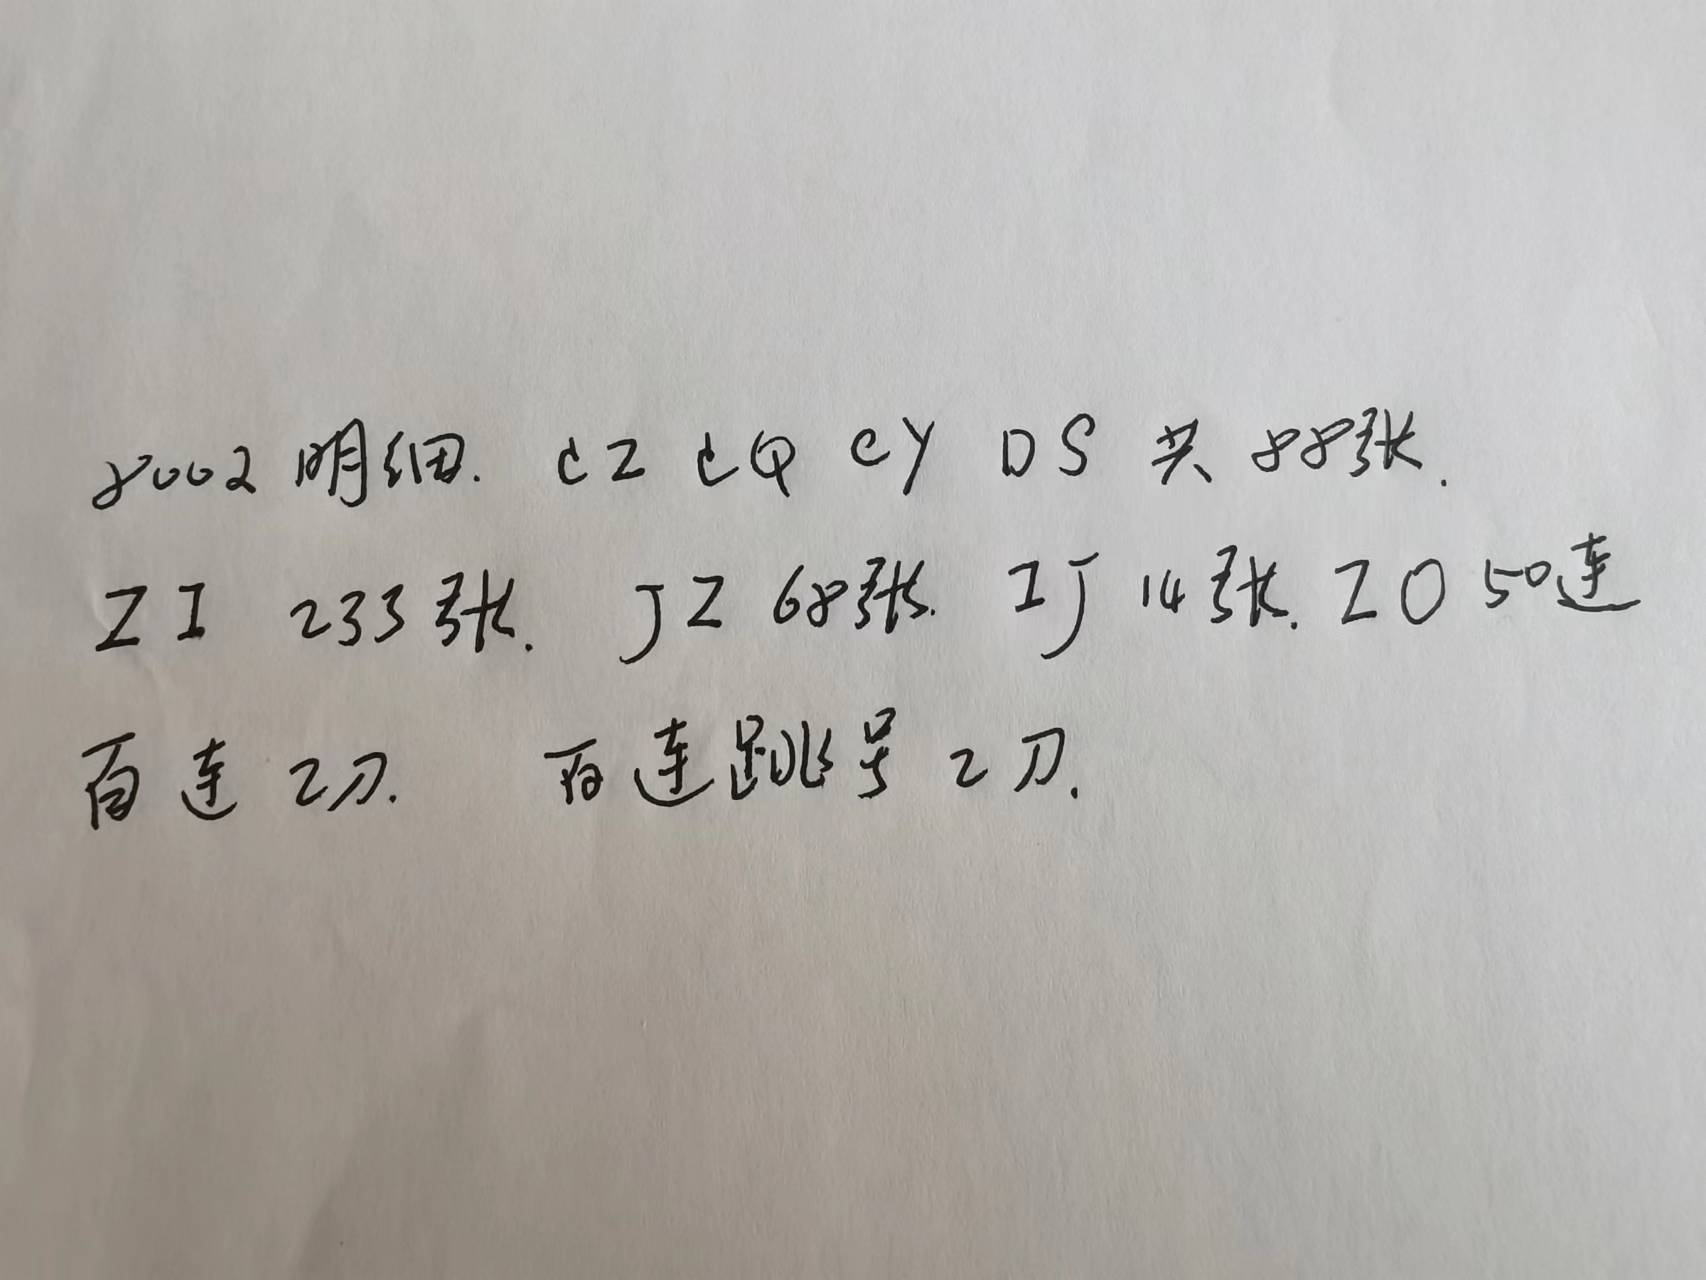 8002明细. CZ CQ CY DS 共 88张.
ZI 233张. JZ 68张. IJ 14张. ZO 50连
百连 2刀. 百连跳号 2刀.